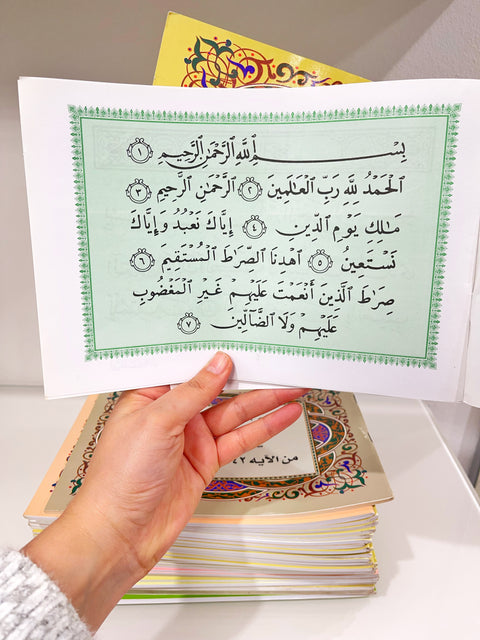 بِسْمِ ٱللَّهِ ٱلرَّحْمَٰنِ ٱلرَّحِيمِ ١
ٱلْحَمْدُ لِلَّهِ رَبِّ ٱلْعَٰلَمِينَ ٢ ٱلرَّحْمَٰنِ ٱلرَّحِيمِ ٣
مَٰلِكِ يَوْمِ ٱلدِّينِ ٤ إِيَّاكَ نَعْبُدُ وَإِيَّاكَ
نَسْتَعِينُ ٥ ٱهْدِنَا ٱلصِّرَٰطَ ٱلْمُسْتَقِيمَ ٦
صِرَٰطَ ٱلَّذِينَ أَنْعَمْتَ عَلَيْهِمْ غَيْرِ ٱلْمَغْضُوبِ
عَلَيْهِمْ وَلَا ٱلضَّآلِّينَ ٧
من الآيه ٤٢